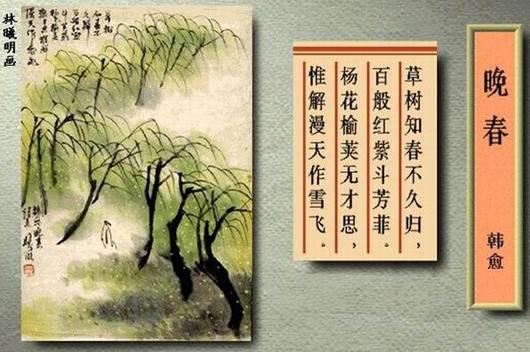 晚春
韩愈
草树知春不久归，
百般红紫斗芳菲。
杨花榆荚无才思，
惟解漫天作雪飞。
林曦明画